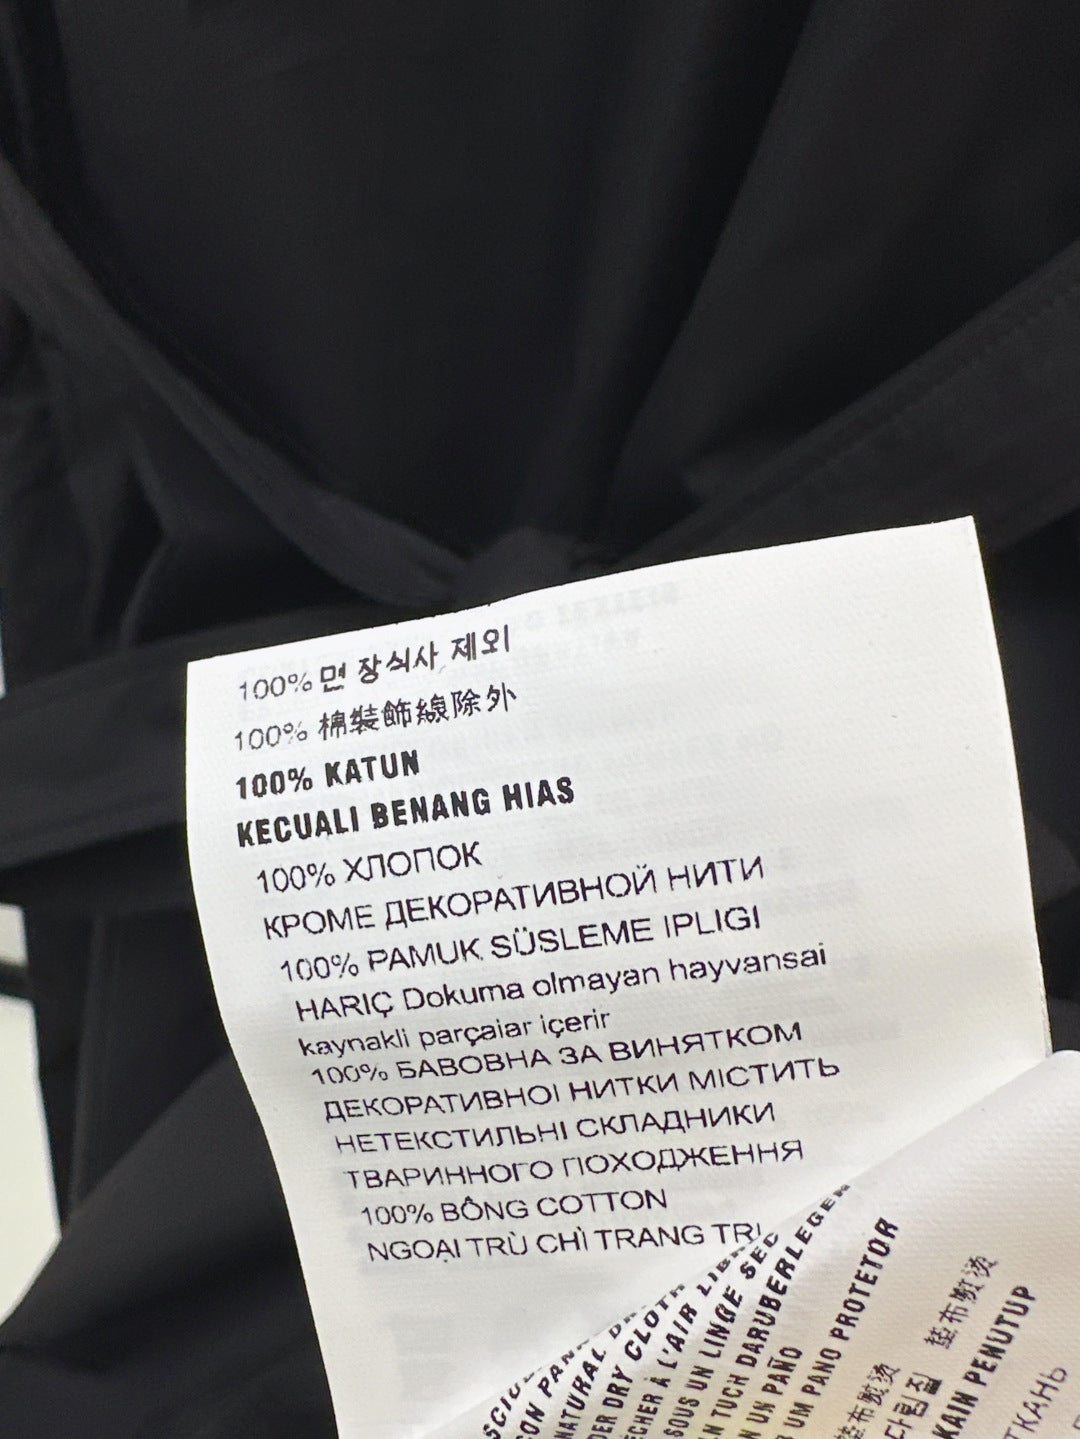 100% 면 장식사 제외
100% 棉裝飾線除外
100% KATUN
KECUALI BENANG HIAS
100% ХЛОПОК
КРОМЕ ДЕКОРАТИВНОЙ НИТИ
100% PAMUK SÜSLEME IPLIGI
HARIÇ Dokuma olmayan hayvansai
kaynakli parçaiar içerir
100% БАВОВНА ЗА ВИНЯТКОМ
ДЕКОРАТИВНОІ НИТКИ МІСТИТЬ
НЕТЕКСТИЛЬНІ СКЛАДНИКИ
ТВАРИННОГО ПОХОДЖЕННЯ
100% BÔNG COTTON
NGOẠI TRÙ CHÌ TRANG TRI
NATURAL
DRY CLOTH
À L'AIR
SOUS UN LINGE SEC
TUCH DARUBERLEGEN
UN PAÑO
UM PANO PROTETOR
垫布熨烫
다림질
墊布熨燙
KAIN PENUTUP
ТКАНЬ